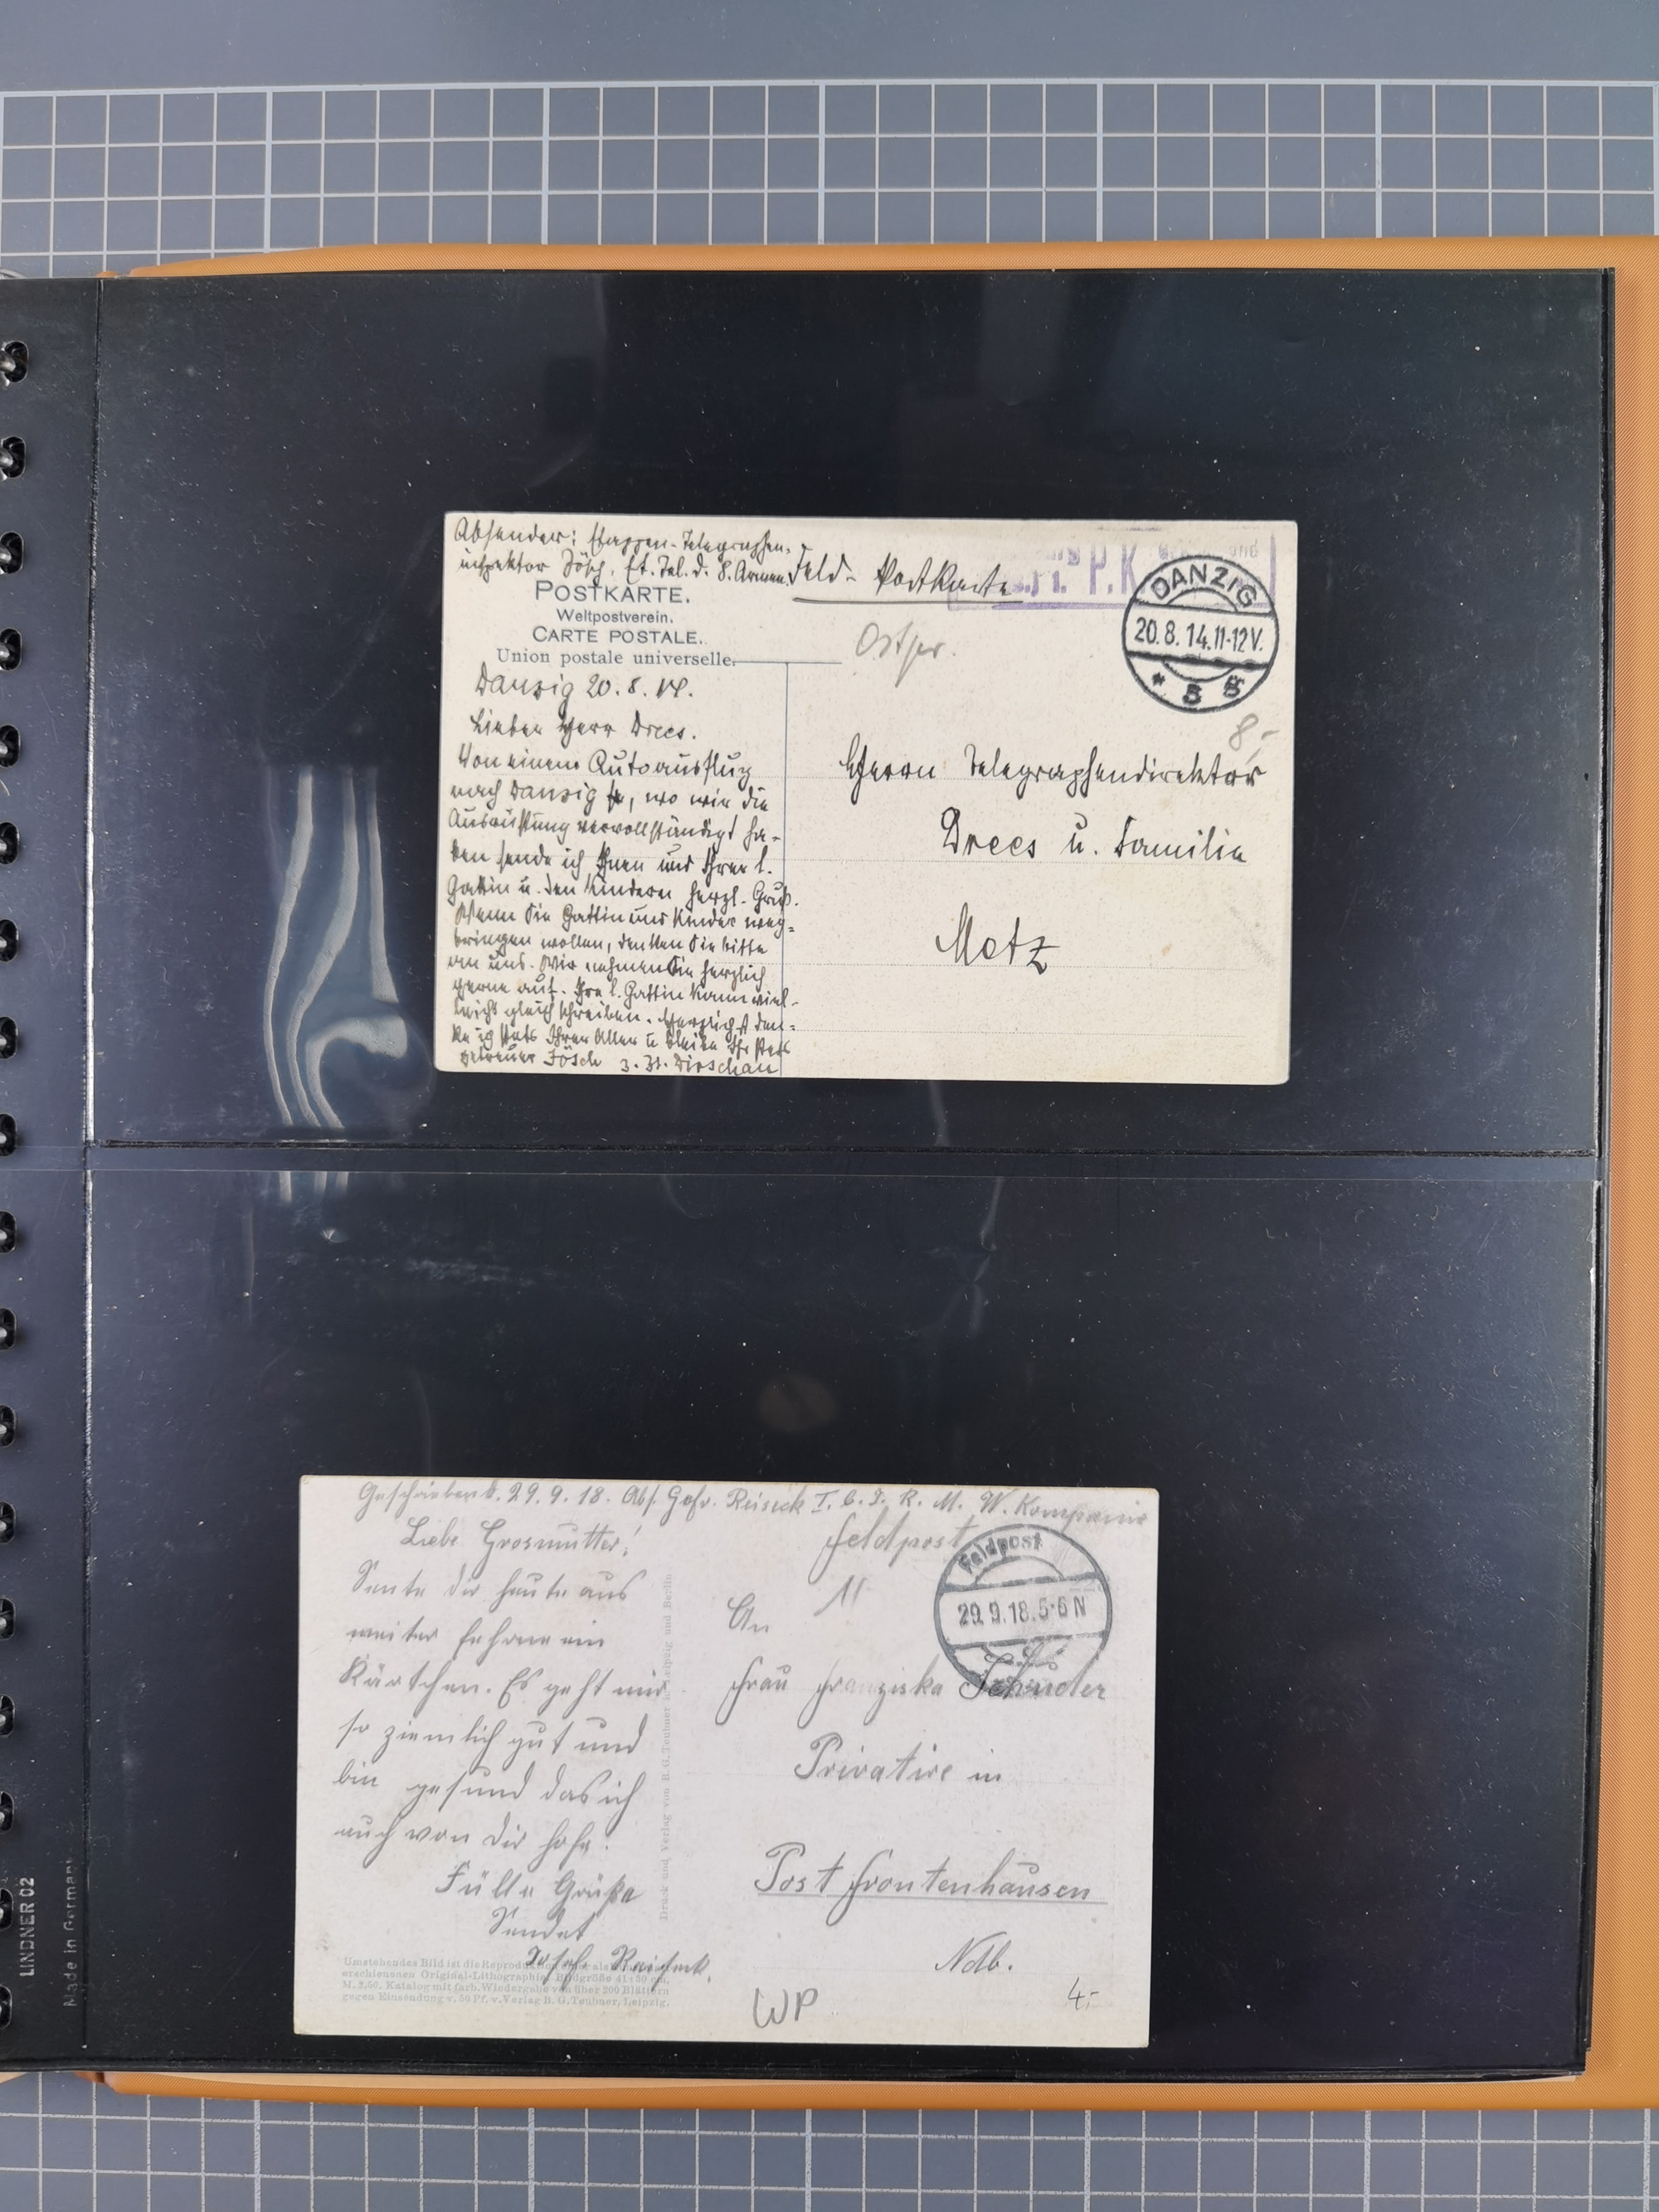 Absender: Etappen-Telegraphen-
inspektor Fösch, Et. Tel. d. 8. Armee.
Feld-Postkarte
P.K
POSTKARTE.
Weltpostverein.
CARTE POSTALE.
Union postale universelle.
Ostpr.
DANZIG
20.8.14.11-12V.
* 5 g
8,-
Danzig 20.8.14.
Lieber Herr Drees.
Von einem Autoausflug
nach Danzig, wo wir die
Ausrüstung vervollständigt ha-
ben sende ich Ihnen und Ihrer l.
Gattin u. den Kindern herzl. Gruß.
Wenn Sie Gattin und Kinder weg-
bringen wollen, denken Sie bitte
an uns. Wir nehmen Sie herzlich
gerne auf. Ihre l. Gattin kann viel-
leicht gleich schreiben. Herzlichst den-
ke ich stets Ihrer Aller u. bleibe Ihr stets
getreuer Fösch z. Zt. Dirschau
Herrn Telegraphendirektor
Drees u. Familie
Metz
Geschrieben d. 29.9.18. Abs. Gefr. Reiseck I. b. I. R. M. W. Kompanie
Feldpost
11
Feldpost
29.9.18.5-6N
Liebe Grosmutter!
Sente dir heute aus
weiter fehrne ein
Kärtchen. Es geht mir
so ziemlich gut und
bin gesund das ich
auch von dir hofe.
Fülle Grüße
Sendet
Josef Reiseck.
An
Frau Franziska
Privatire in
Post Frontenhausen
Ndb.
WP
4,-
Druck und Verlag von B. G. Teubner in Leipzig und Berlin
Umstehendes Bild ist die Reproduktion
erschienenen Original-Lithographie. Bildgröße 41×30 cm.
M. 2,50. Katalog mit farb. Wiedergabe von über 200 Blättern
gegen Einsendung v. 50 Pf. v. Verlag B. G. Teubner, Leipzig.
LINDNER 02
Made in Germany